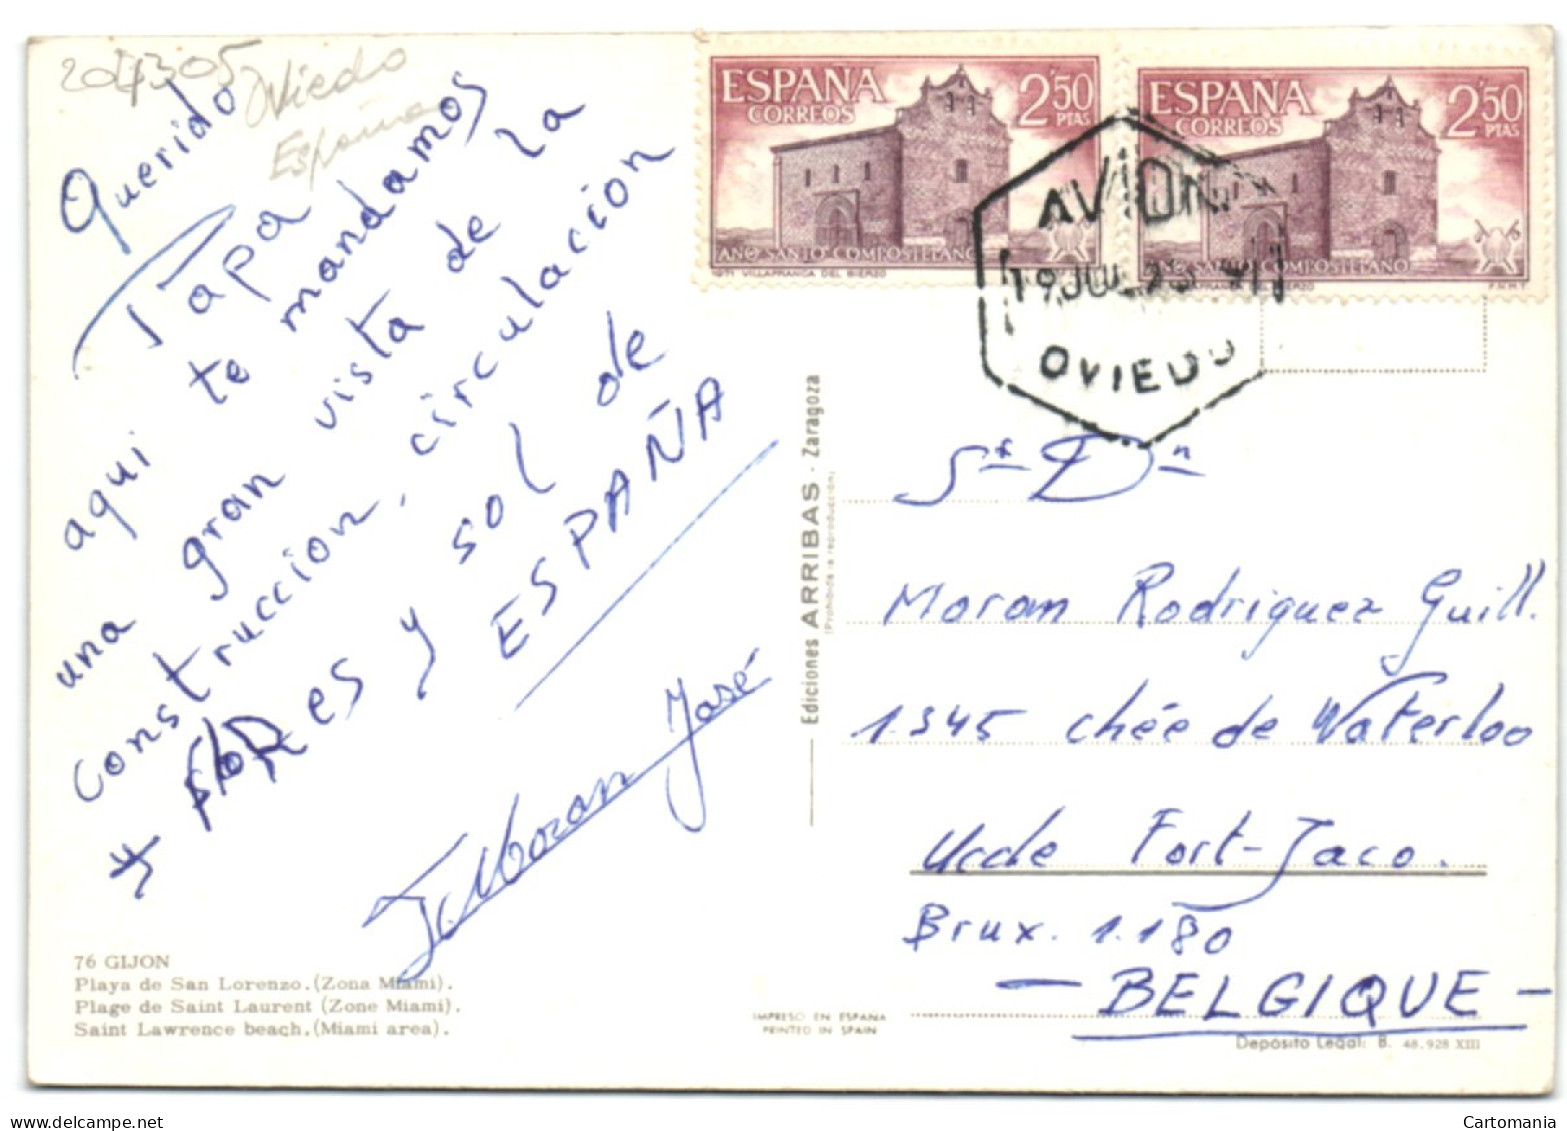 204305
Oviedo
España
Querido
Papa
aqui te mandamos
una gran vista de la
construccion, circulacion
y flores y sol de
ESPAÑA
J. Moran José
76 GIJON
Playa de San Lorenzo. (Zona Miami).
Plage de Saint Laurent (Zone Miami).
Saint Lawrence beach. (Miami area).
Ediciones ARRIBAS - Zaragoza
(Prohibida la reproducción)
IMPRESO EN ESPAÑA
PRINTED IN SPAIN
ESPAÑA
CORREOS
2'50
PTAS
AÑO SANTO COMPOSTELANO
1971 VILLAFRANCA DEL BIERZO
ESPAÑA
CORREOS
2'50
PTAS
COMPOSTELANO
F.N.M.T
AVION
19 JUL
OVIEDO
Sr Dn
Moran Rodriguez Guill.
1.345 chée de Waterloo
Uccle Fort-Jaco.
Brux. 1.180
— BELGIQUE —
Depósito Legal: B. 48.928 XIII
Cartomania